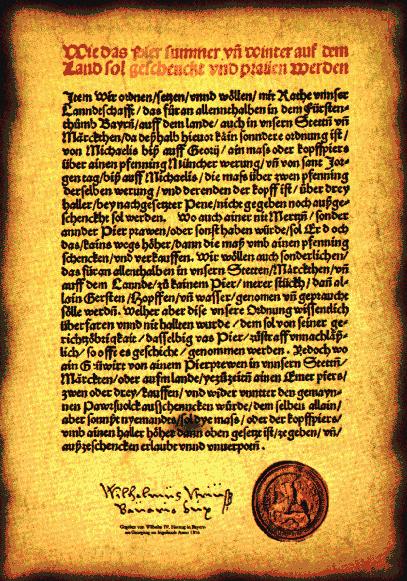 Wie das Pier summer vñ winter auf dem
Land sol geschenckt vnd prauen werden
Item Wir ordnen/setzen/vnnd wöllen/mit Rathe vnnser
Lanndtschafft/das für an allennthalben in dem Fürsten-
thůmb Bayrn/auff dem lande/auch in vnsern Stettñ vñ
Märckthen/da deßhalb hieuor kain sonndere ordnung ist/
von Michaelis biß auff Georij/ain mass oder kopffpiers
über ainen pfenning Müncher werung/vñ von sant Jor-
gen tag/biß auff Michaelis/die mass über zwen pfenning
derselben werung/vnd derenden der kopff ist/über drey
haller/bey nachgesetzter Pene/nicht gegeben noch außge-
schenckht sol werden. Wo auch ainer nit Mertzñ/sonder
annder Pier prawen/oder sonst haben würde/sol Er doch
das/kains wegs höher/dann die maß vmb ainen pfenning
schencken/vnd verkauffen. Wir wöllen auch sonderlichen/
das für an allenthalben in vnsern Stetten/Märckthen/vñ
auff dem Lannde/zů kainem Pier/merer stückh/dañ al-
lain Gersten/Hopffen/vñ wasser/genomen vñ gepraucht
sölle werdñ. Welher aber dise vnsere Ordnung wissendlich
überfaren vnnd nit hallten wurde/dem sol von seiner ge-
richtzöbrigkait/dasselbig vas Pier/zůstraff vnnachläß-
lich/so offt es geschicht/genommen werden. Redoch wo
ain Güwirt von ainem Pierprewen in vnnsern Stettñ/
Märckten/oder aufm lande/yezůzeitñ ainen Emer piers/
zwen oder drey/kauffen/vnd wider vnnter den gemayn-
nen Pawrsuolck ausschenncken würde/dem selben allain/
aber sonnst nyemandts/sol dye mass/oder der kopffpiers/
vmb ainen haller höher dann oben gesetzt ist/ze geben/vñ/
außzeschencken erlaubt vnnd vnuerpotñ.
Wilhelmus
Bavarie Dux
Gegeben von Wilhelm IV. Herzog in Bayern
am Georgitag zu Ingolstadt Anno 1516